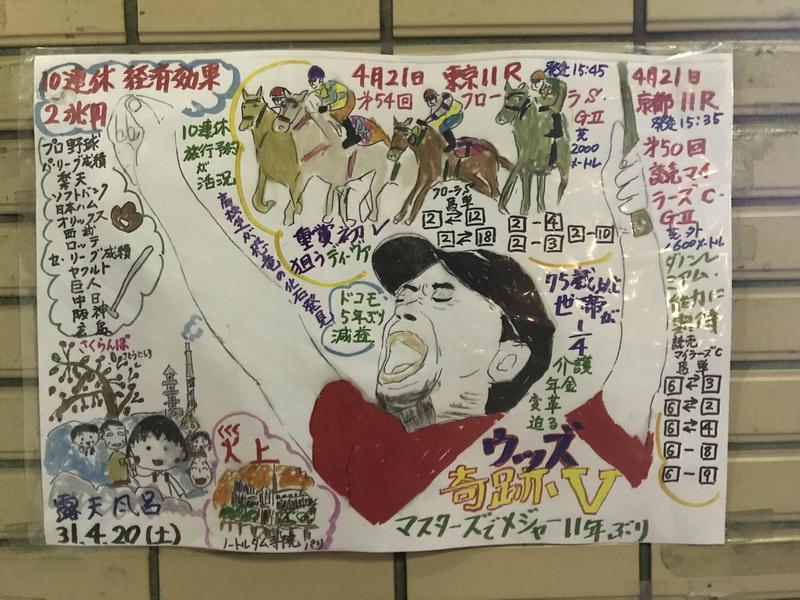 10連休 経済効果
2兆円
プロ野球
パ・リーグ成績
楽天
ソフトバンク
日本ハム
オリックス
西武
ロッテ
セ・リーグ成績
ヤクルト
巨人
中日
阪神
広島
さくらんぼ
さとうにしき
露天風呂
31.4.20(土)
10連休
旅行予約
が
活況
高校生が恐竜の化石発見
4月21日 東京11R 発走15:45
第54回 フローラS
GⅡ
芝
2000
メートル
重賞初
狙うディーヴァ
フローラS
馬単
2⇄12
2⇄18
2-4
2-3
2-10
ドコモ
5年ぶり
減益
75歳以上
世帯が
1/4
介護
年金
変革
迫る
炎上
ノートルダム寺院 パリ
ウッズ
奇跡・V
マスターズでメジャー11年ぶり
4月21日
京都11R
発走15:35
第50回
読売マイ
ラーズC・
GⅡ
芝・外
1600メートル
ダノンレ
ニアム・
能力に
期待
読売
マイラーズC
馬単
6⇄3
6⇄2
6⇄4
6-8
6-9